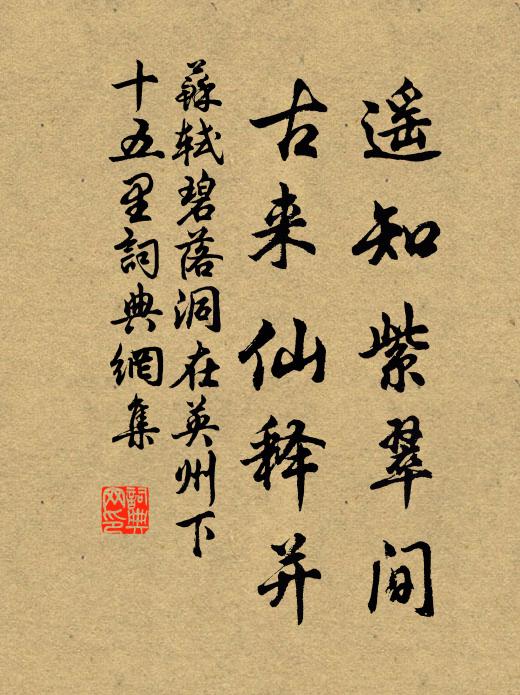 遥知紫翠间
古来仙释并
蘇軾碧落洞在英州下
十五里詞典網集
詞典
网印